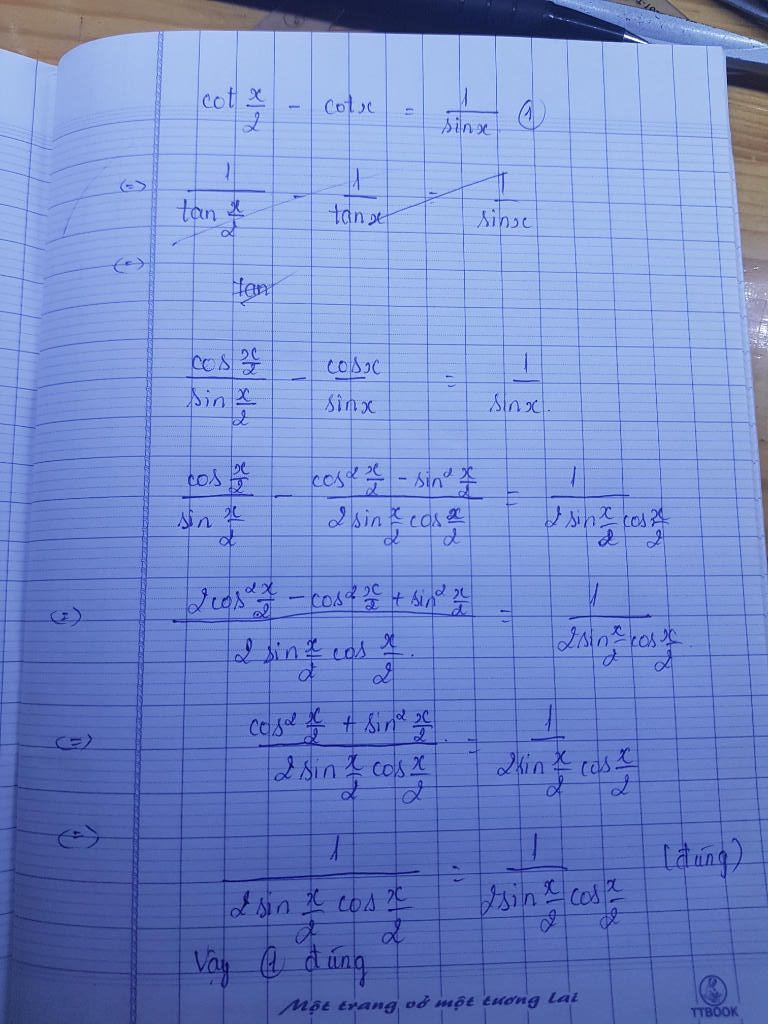 cot x/2 - cotx = 1/sinx ①
(=) 1/tan x/2 - 1/tanx = 1/sinx
(=) tan
cos x/2 / sin x/2 - cosx/sinx = 1/sinx.
cos x/2 / sin x/2 - (cos² x/2 - sin² x/2)/(2 sin x/2 cos x/2) = 1/(2 sin x/2 cos x/2)
(=) (2cos² x/2 - cos² x/2 + sin² x/2)/(2 sin x/2 cos x/2). = 1/(2sin x/2 cos x/2)
(=) (cos² x/2 + sin² x/2)/(2 sin x/2 cos x/2). = 1/(2sin x/2 cos x/2)
(=) 1/(2 sin x/2 cos x/2) = 1/(2sin x/2 cos x/2) (đúng)
Vậy ① đúng
Một trang vở một tương lai
TTBOOK